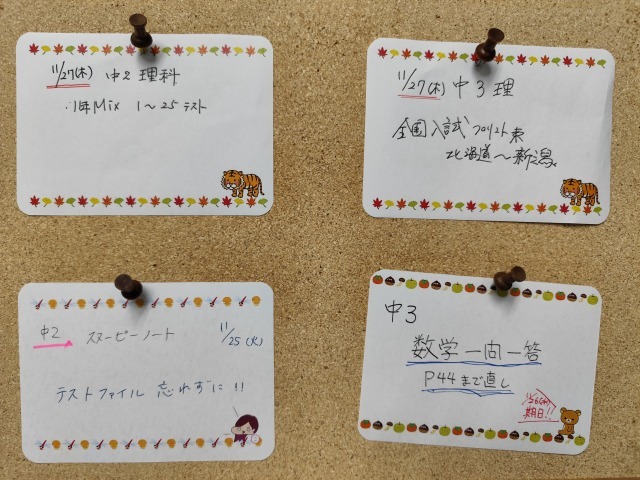 11/27(木) 中2 理科
1年Mix 1〜25 テスト
11/27(木) 中3 理
全国入試プリント束
北海道〜新潟
中2 スヌーピーノート 11/25(火)
テストファイル 忘れずに!!
中3
数学 一問一答
P44まで直し
11/26(水)
期日!!